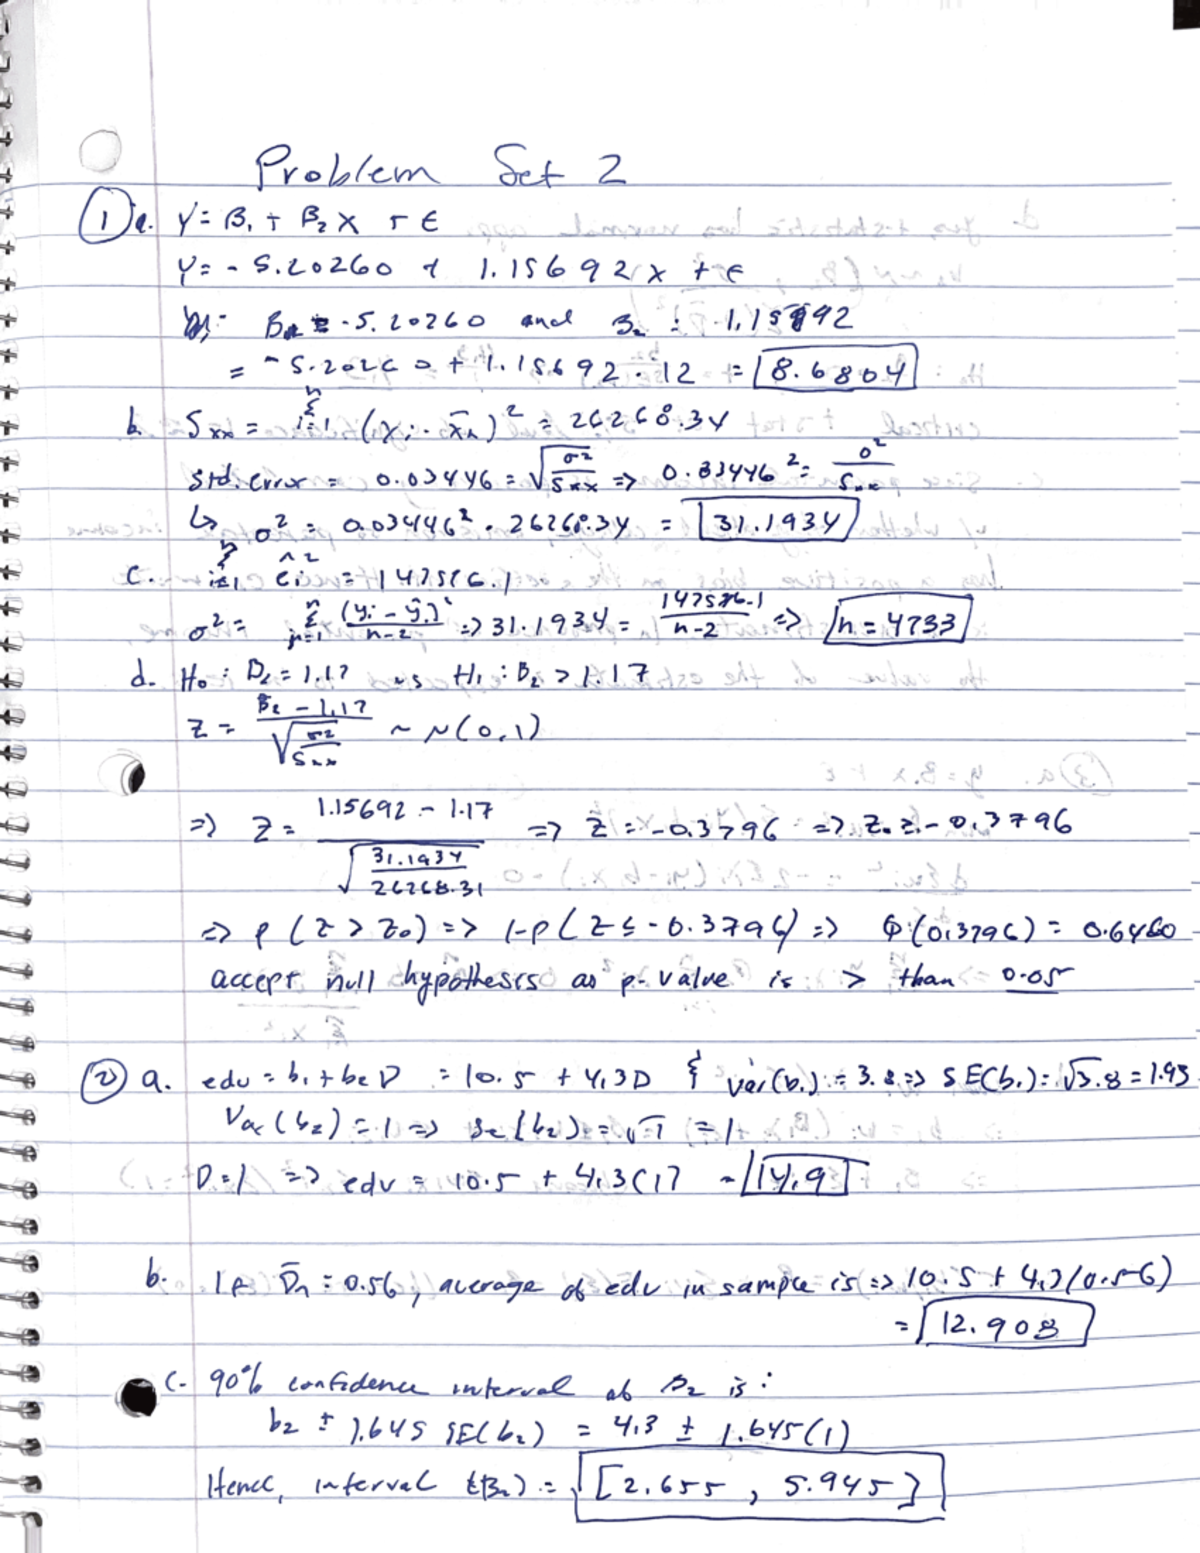 Problem Set 2
1) a. Y = B₁ + B₂ X + ε
Y = -5.20260 + 1.15692 x + ε
-5.20260 and B₂ = 1.15692
= -5.20260 + 1.15692 · 12 = 8.6804
b. Sxx = Σ i=1 n (xi - x̄n)² = 26268.34
Std. error = 0.03446 = √(σ²/Sxx) => 0.03446² = σ²/Sxx
↳ σ² = 0.03446² · 26268.34 = 31.1934
c. Σ i=1 n êi² = 147586.1
σ² = Σ i=1 n (yi - ŷi)²/(n-2) => 31.1934 = 147586.1/(n-2) => n = 4733
d. H₀ : B₂ = 1.17 vs H₁ : B₂ > 1.17
Z = (B₂ - 1.17)/√(σ²/Sxx) ~ N(0,1)
=> Z = (1.15692 - 1.17)/√(31.1934/26268.31) => Z = -0.3796 => Z₀ = -0.3796
=> P(Z > Z₀) => 1-P(Z ≤ -0.3796) => Φ(0.3796) = 0.6480
accept null hypothesis as p-value is > than 0.05
2) a. edu = b₁ + b₂ D = 10.5 + 4.3D & var(b₁) = 3.8 => SE(b₁) = √3.8 = 1.95
Var(b₂) = 1 => se(b₂) = √1 = 1
D=1 => edu = 10.5 + 4.3(1) = 14.9
b. If D̄n = 0.56, average of edu in sample is => 10.5 + 4.3(0.56)
= 12.908
c. 90% confidence interval of B₂ is :
b₂ ± 1.645 SE(b₂) = 4.3 ± 1.645(1)
Hence, interval (B₂) = [2.655, 5.945]